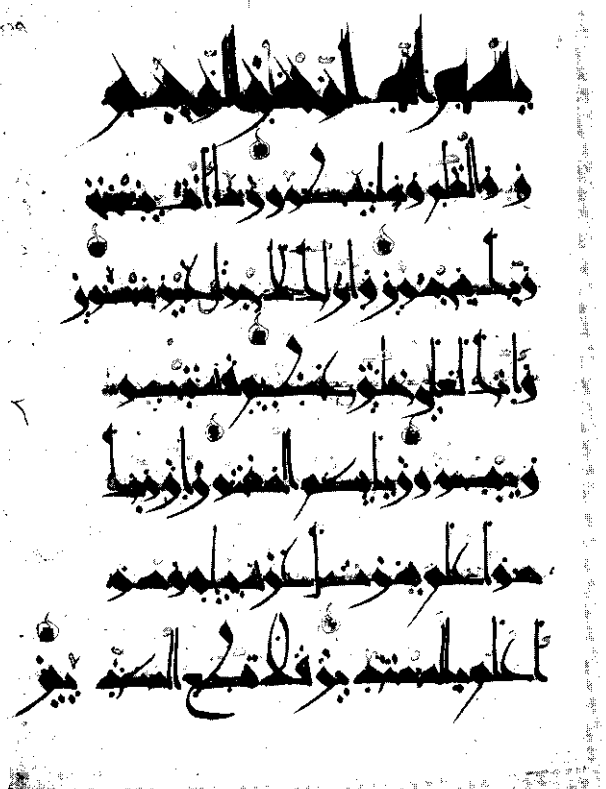 بسم الله الرحمن الرحيم
ن والقلم وما يسطرون ما أنت بنعمة
ربك بمجنون وإن لك لأجرا غير ممنون
وإنك لعلى خلق عظيم فستبصر
ويبصرون بأييكم المفتون إن ربك
هو أعلم بمن ضل عن سبيله وهو
أعلم بالمهتدين فلا تطع المكذبين